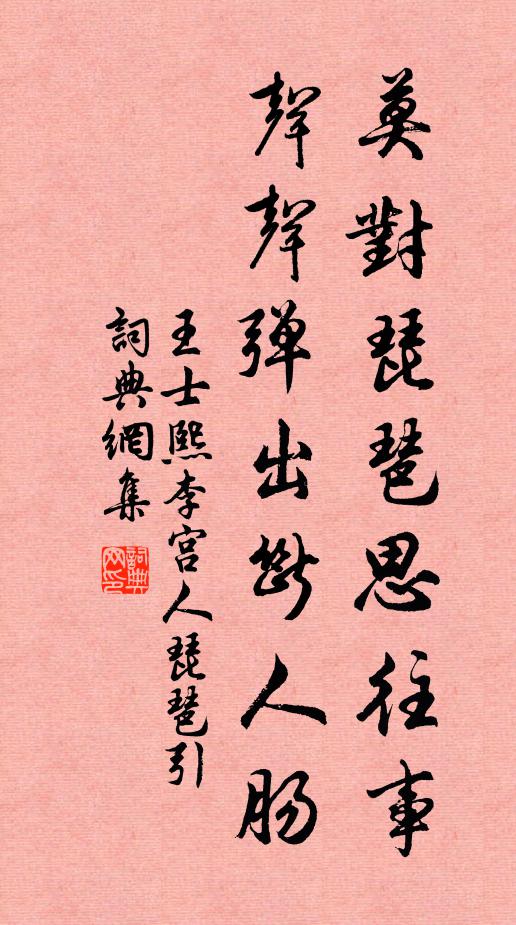 莫對琵琶思往事
聲聲弹出斷人肠
王士熙李宫人琵琶引
詞典網集
詞典网印